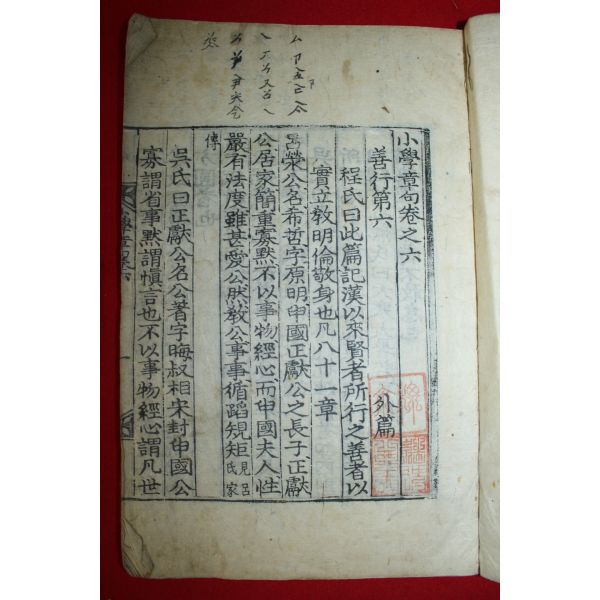 小學章句卷之六
善行第六 外篇
程氏曰此篇記漢以來賢者所行之善者以
實立敎明倫敬身也凡八十一章
呂滎公名希哲字原明申國正獻公之長子正獻
公居家簡重寡默不以事物經心而申國夫人性
嚴有法度雖甚愛公然敎公事事循蹈規矩 見呂氏家
傳
吳氏曰正獻公名公著字晦叔相宋封申國公
寡謂省事默謂愼言也不以事物經心謂凡世